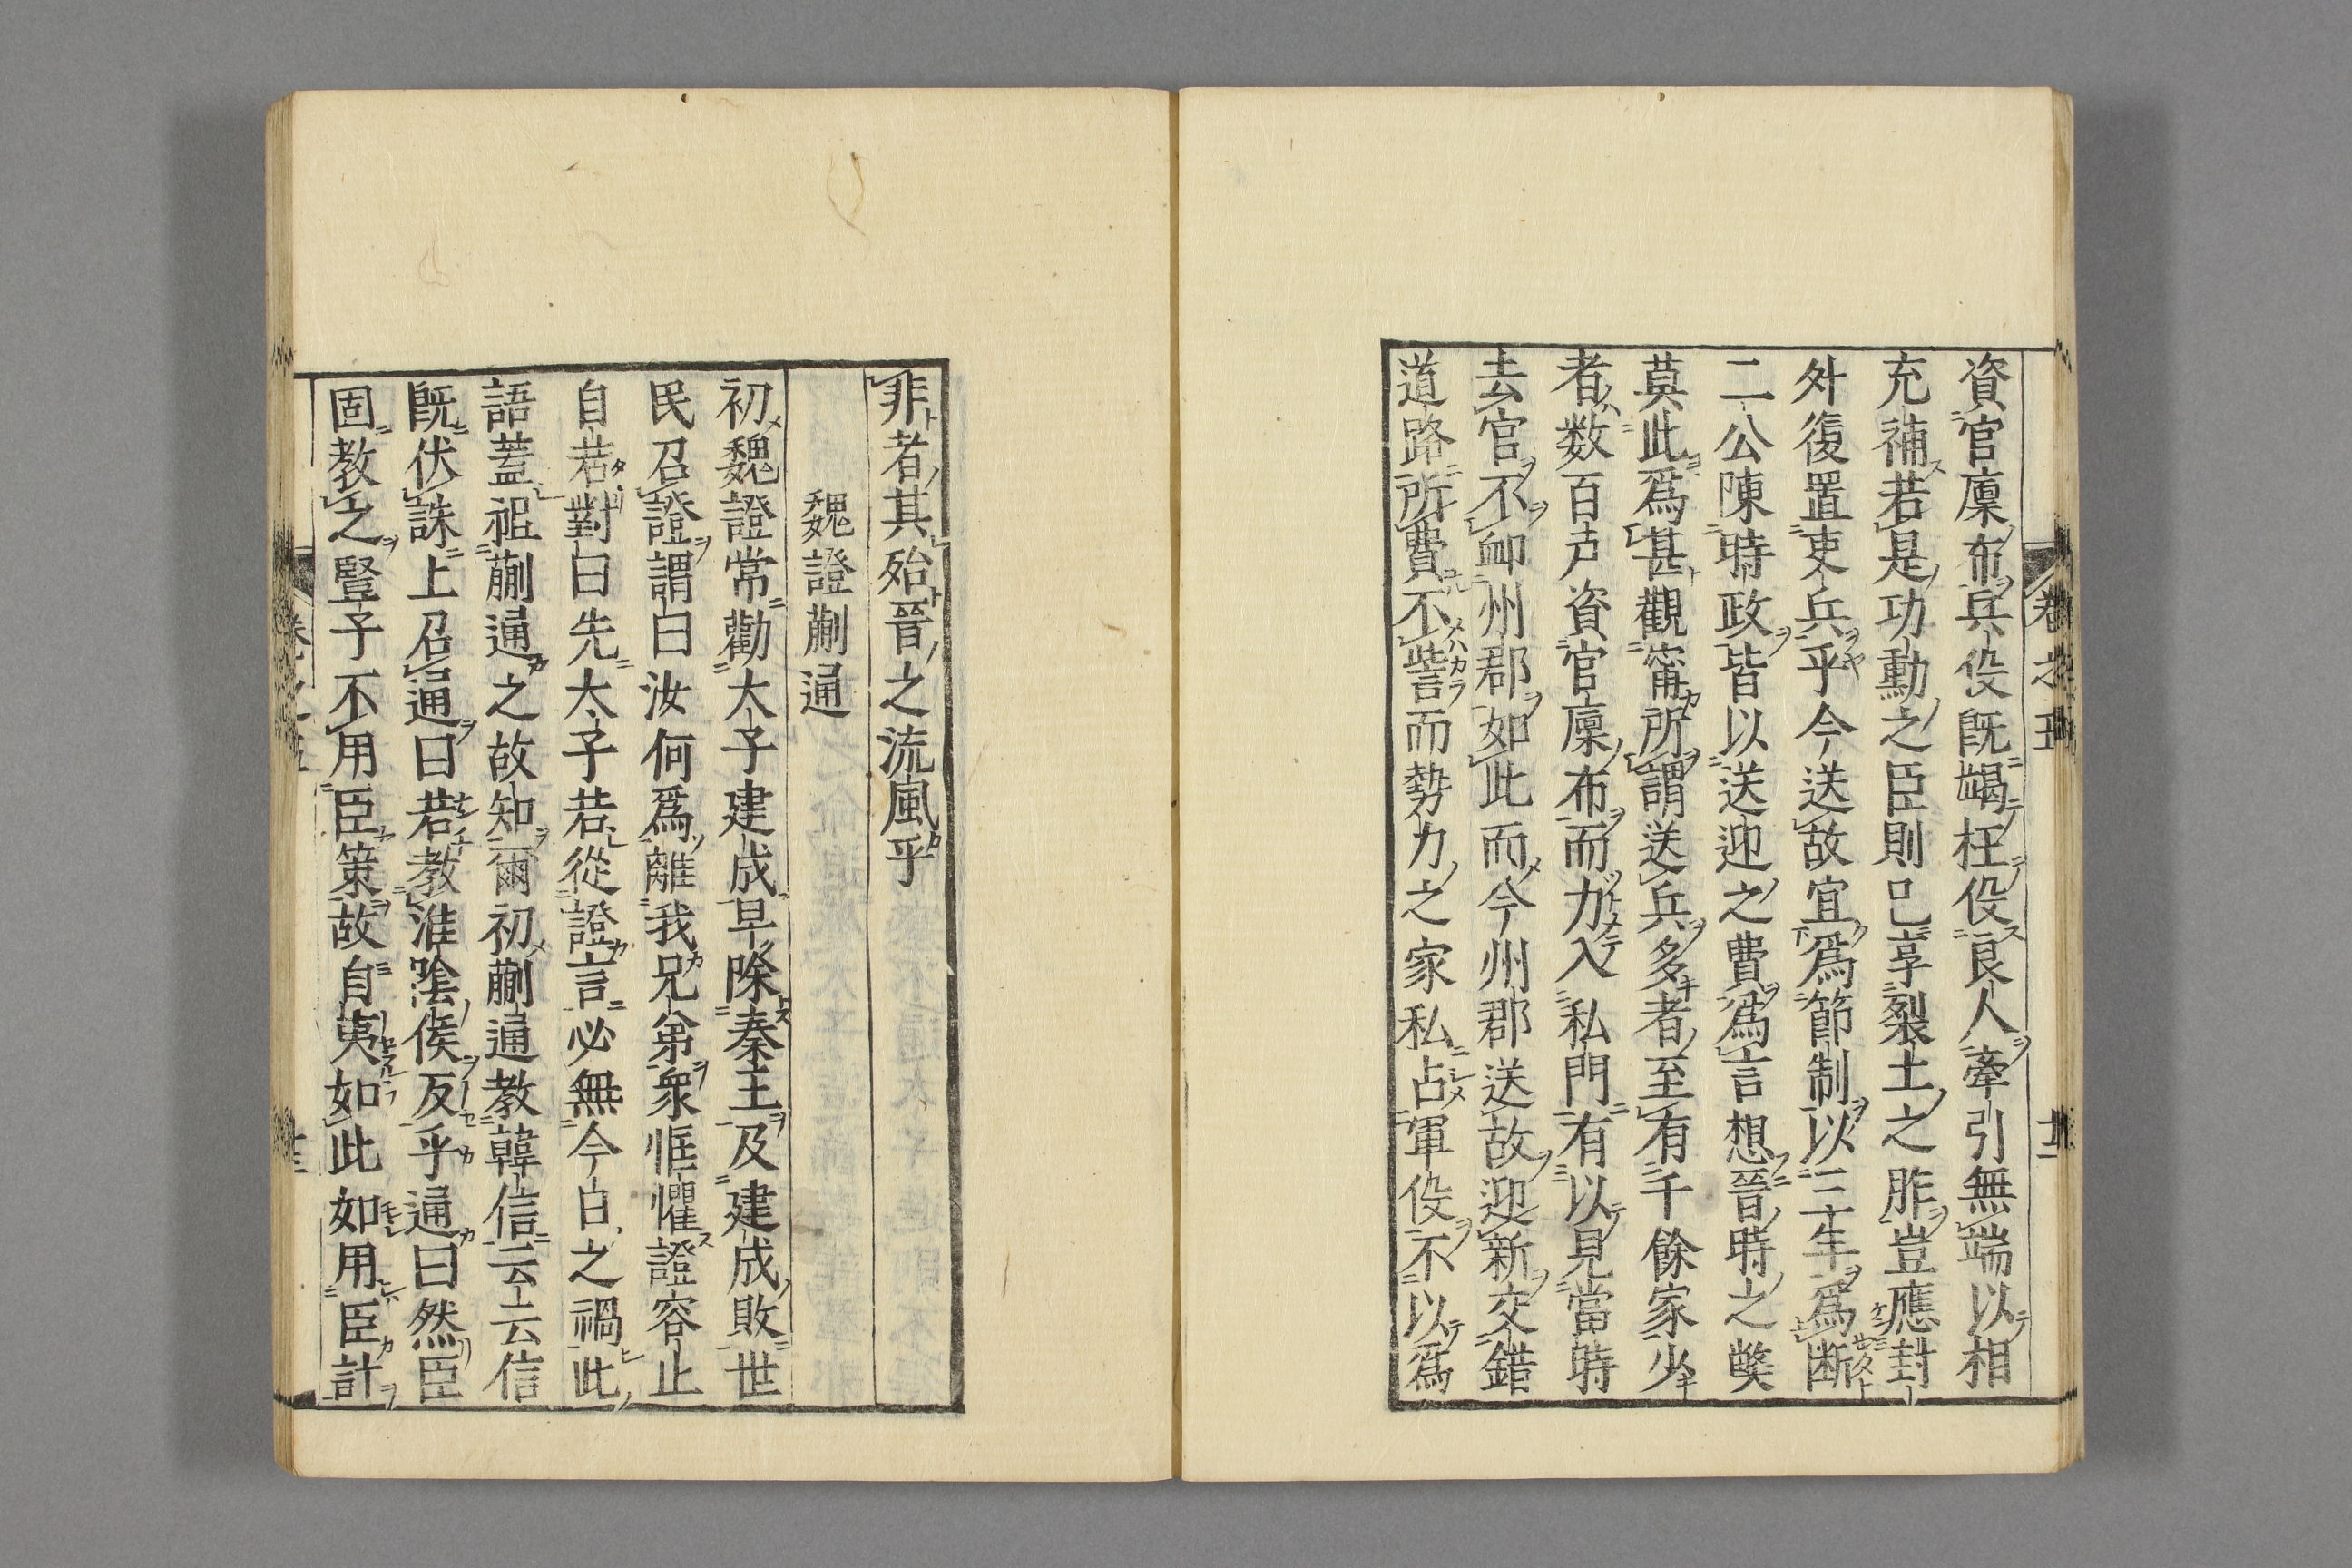 資官廩布兵役既竭枉役良人牽引無端以相
充補若是功勳之臣則已享裂土之胙豈應封
外復置吏兵乎今送故宜爲節制以三年爲断
二公陳時政皆以送迎之費爲言想晉時之獘
莫此爲甚觀甯所謂送兵多者至有千餘家少
者数百戸資官廩布而力入私門有以見當時
去官不卹州郡如此而今州郡送故迎新交錯
道路所費不訾而勢力之家私占軍役不以爲
非者其殆晉之流風乎
魏證蒯通
初魏證常勸太子建成早除秦王及建成敗世
民召證謂曰汝何爲離我兄弟衆恇懼證容止
自若對曰先太子若從證言必無今日之禍此
語蓋祖蒯通之故知爾初蒯通教韓信云云信
既伏誅上召通曰若教淮陰侯反乎通曰然臣
固教之豎子不用臣策故自夷如此如用臣計